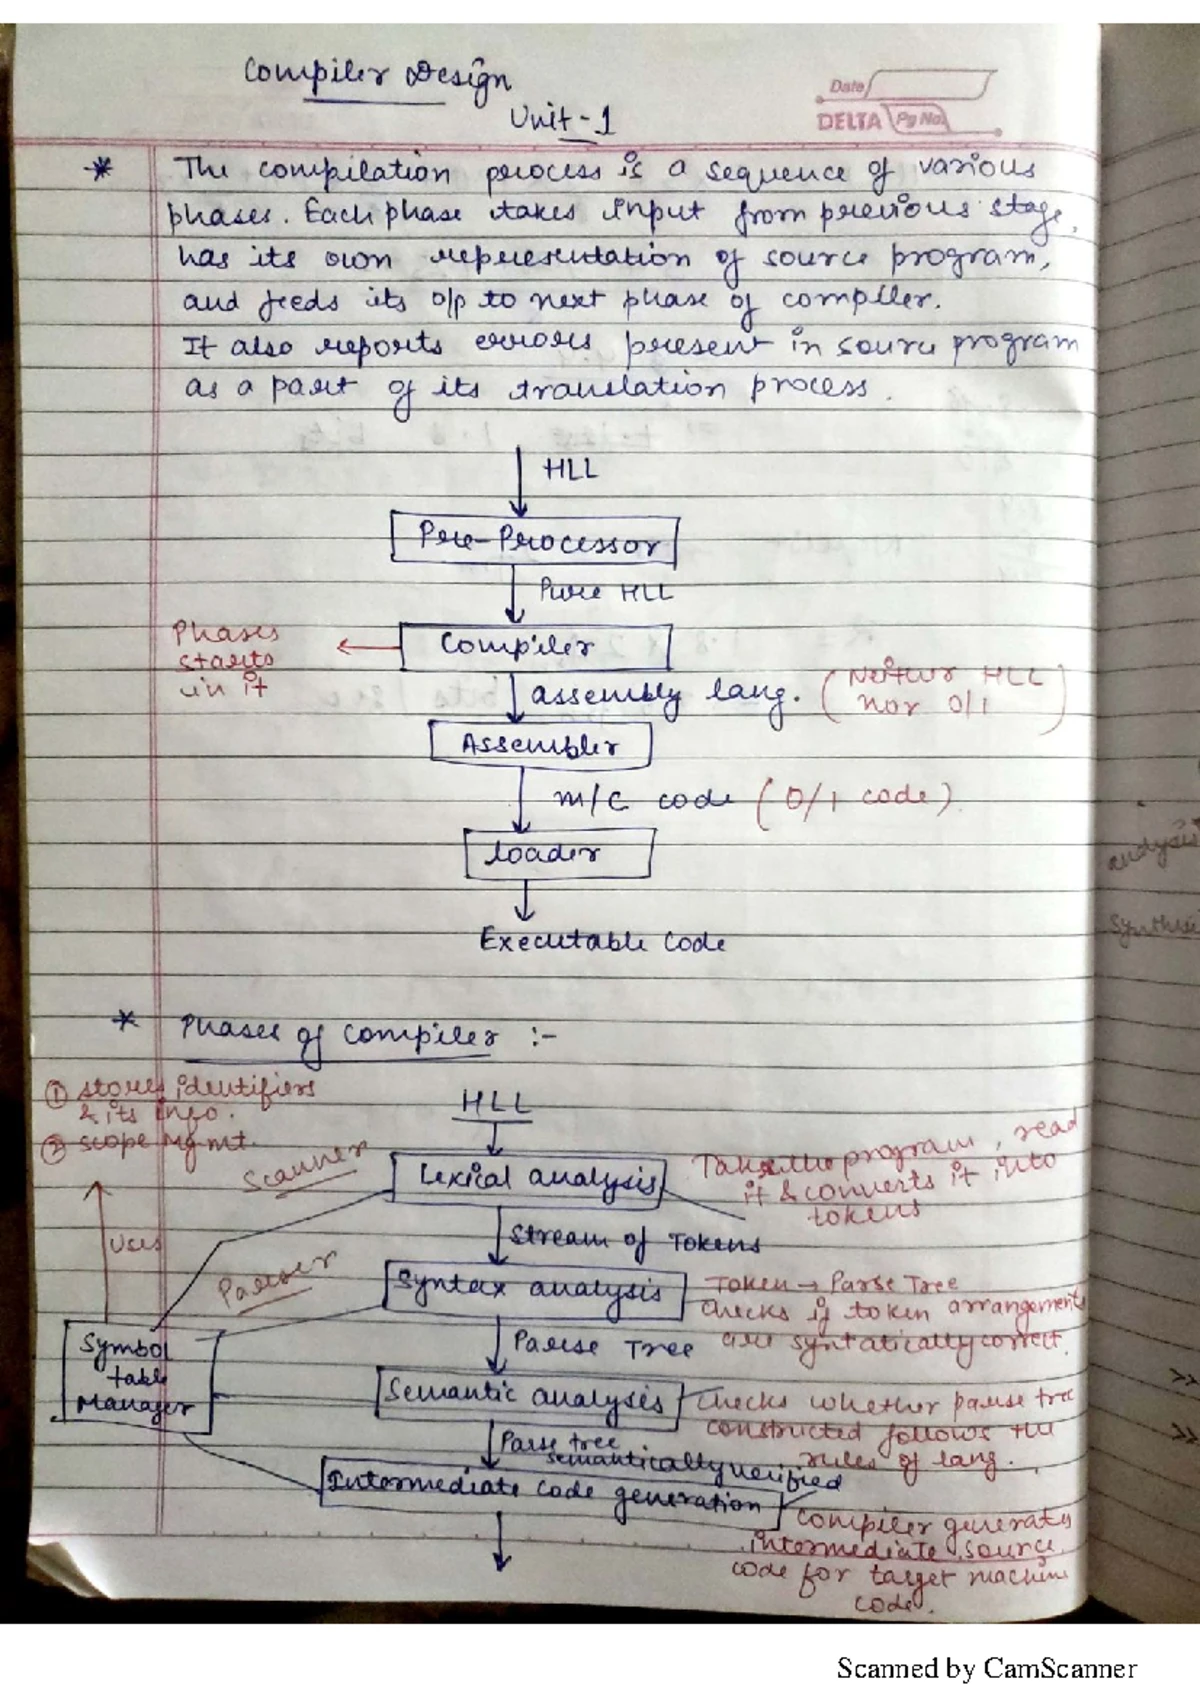 Compiler Design
Unit-1
Date
DELTA Pg No.
* The compilation process is a sequence of various
phases. Each phase takes input from previous stage,
has its own representation of source program,
and feeds its o/p to next phase of compiler.
It also reports errors present in source program
as a part of its translation process.
HLL
Pre-Processor
Pure HLL
Phases
starts
in it
Compiler
assembly lang. (Neither HLL
nor 0/1)
Assembler
m/c code (0/1 code)
loader
Executable Code
analysis
Synthesi
* Phases of compiler :-
① stores identifiers
& its info.
② scope Mgmt.
HLL
Scanner
Lexical analysis
Takes the program, read
it & converts it into
tokens
Uses
Stream of Tokens
Parser
Syntax analysis
Token → Parse Tree
checks if token arrangements
are syntatically correct.
Parse Tree
Symbol
table
Manager
Semantic analysis
checks whether parse tree
constructed follows the
rules of lang.
Parse tree
semantically verified
Intermediate code generation
Compiler generates
intermediate source
code for target machine
code.
>>
>>
Scanned by CamScanner